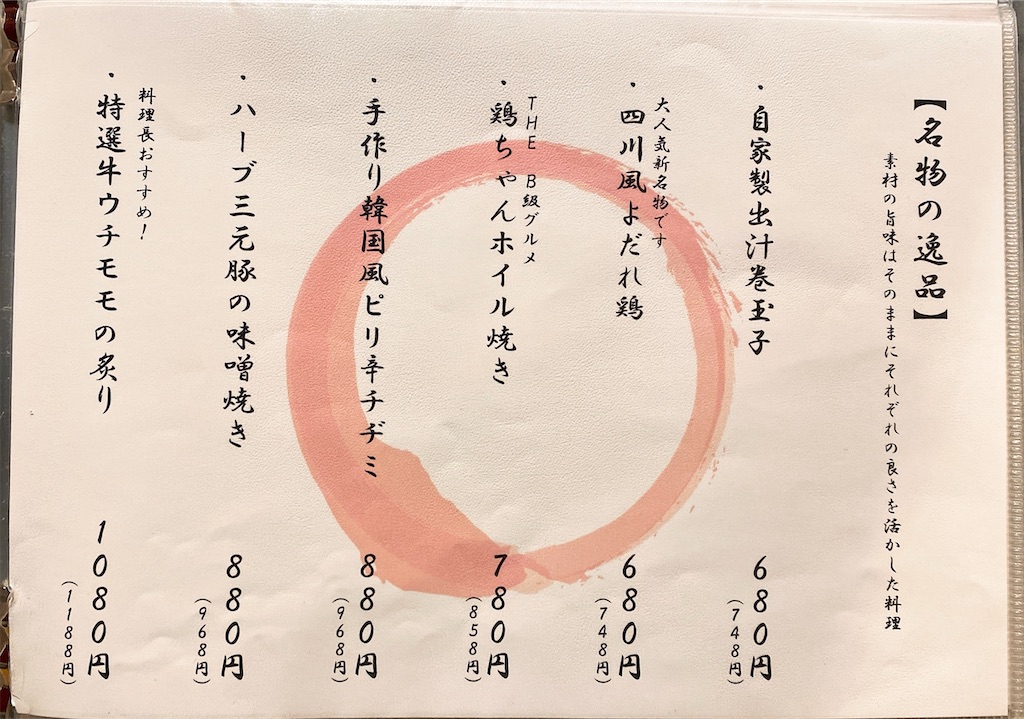 【名物の逸品】
素材の旨味はそのままにそれぞれの良さを活かした料理
・自家製出汁巻玉子 680円
(748円)
大人気新名物です
・四川風よだれ鶏 680円
(748円)
THE B級グルメ
・鶏ちゃんホイル焼き 780円
(858円)
・手作り韓国風ピリ辛チヂミ 880円
(968円)
・ハーブ三元豚の味噌焼き 880円
(968円)
料理長おすすめ！
・特選牛ウチモモの炙り 1080円
(1188円)